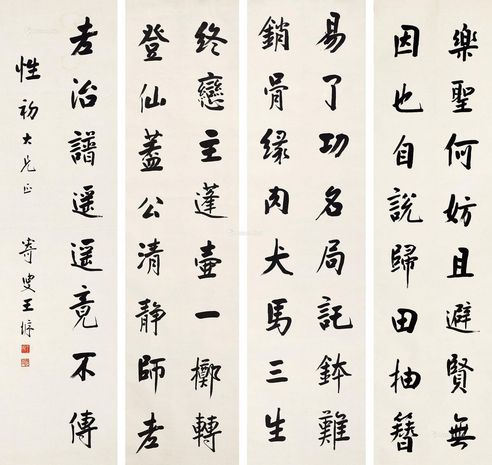 樂聖何妨且避賢無
因也自說歸田抽簪
易了功名局託鉢難
銷骨緣肉犬馬三生
終戀主蓬壺一擲轉
登仙蓋公清靜師老
老治譜遥遥竟不傳
性初大兄正
寄叟王